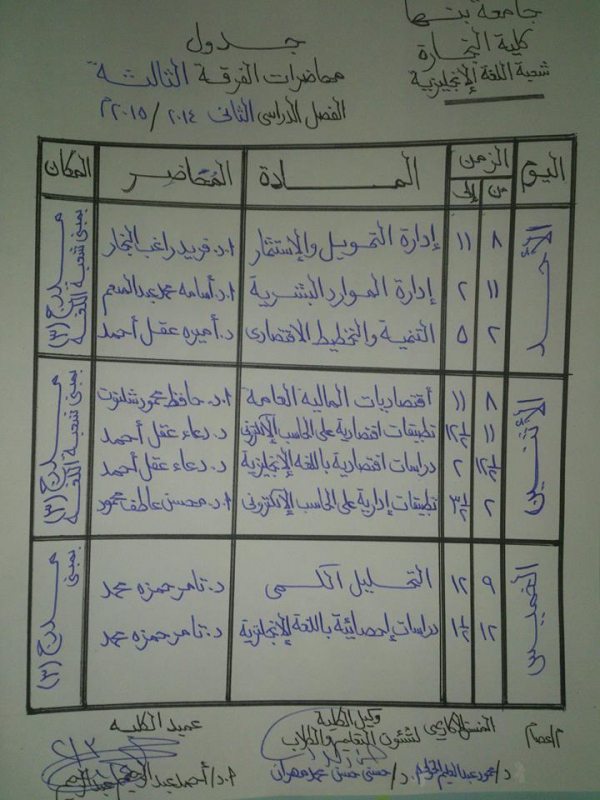 جامعة بنها
كلية التجارة
شعبة اللغة الإنجليزية
جدول
محاضرات الفرقة الثالثة
الفصل الدراسى الثانى ٢٠١٤ / ٢٠١٥م
اليوم الزمن المادة المحاضر المكان
من إلى
الأحد ٨ ١١ إدارة التمويل والإستثمار ا.د. فريد راغب النجار مدرج (٣) بمبنى شعبة اللغة
١١ ٢ إدارة الموارد البشرية ا.د. أسامه محمد عبد المنعم
٢ ٥ التنمية والتخطيط الاقتصادى د. أميره عقل أحمد
الأثنين ٨ ١١ أقتصاديات المالية العامة ا.د. حافظ محمود شلتوت مدرج (٣) بمبنى شعبة اللغة
١١ ١٢½ تطبيقات اقتصادية على الحاسب الإلكترونى د. دعاء عقل أحمد
١٢½ ٢ دراسات اقتصادية باللغة الإنجليزية د. دعاء عقل أحمد
٢ ٣½ تطبيقات إدارية على الحاسب الإلكترونى ا.د. محسن عاطف محمود
الخميس ٩ ١٢ التحليل الكمى د. تامر حمزه محمد مدرج (٣) بمبنى
١٢ ١½ دراسات إحصائية باللغة الإنجليزية د. تامر حمزه محمد
المنسق الأكاديمي وكيل الكلية عميد الكليه
لشئون التعليم والطلاب
ا.د/ حسنى حسن محمد مهران ا.د/ أحمد